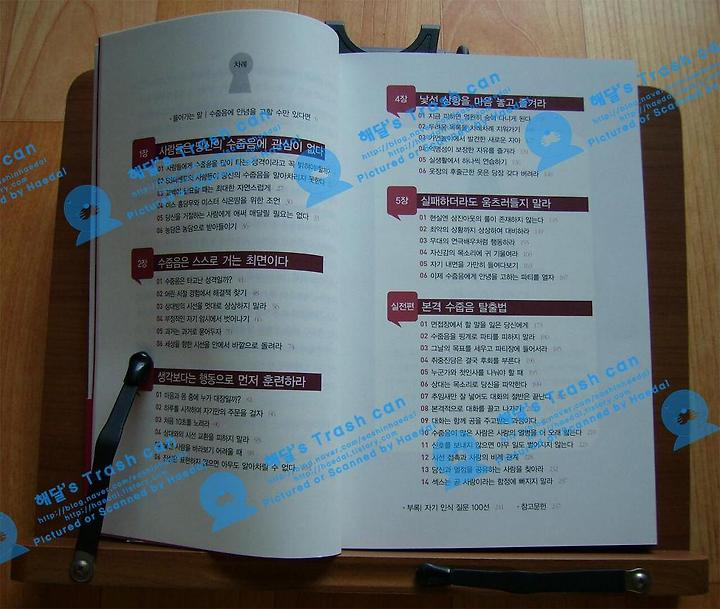 차례
• 들어가는 말 | 수줍음에 안녕을 고할 수만 있다면
1장 사람들은 당신의 수줍음에 관심이 없다
01 사람들에게 수줍음을 많이 타는 성격이라고 꼭 밝혀야할까
사람들이 당신의 수줍음을 알아차리지 못한다
필요할 때는 최대한 자연스럽게
04 미스 홍당무와 미스터 식은땀을 위한 조언
05 당신을 거절하는 사람에게 애써 매달릴 필요는 없다
06 농담은 농담으로 받아들이기
2장 수줍음은 스스로 거는 최면이다
01 수줍음은 타고난 성격일까?
02 어린 시절 경험에서 해결책 찾기
03 상대방의 시선을 멋대로 상상하지 말라
04 부정적인 자기 암시에서 벗어나기
05 과거는 과거로 묻어두자
06 세상을 향한 시선을 안에서 바깥으로 돌려라
생각보다는 행동으로 먼저 훈련하라
01 마음과 몸 중에 누가 대장일까?
02 하루를 시작하며 자기만의 주문을 걸자
03 처음 10초를 노려라
04 상대와의 시선 교환을 피하지 말라
사람을 바라보기 어려울 때
06 표현하지 않으면 아무도 알아차릴 수 없다
4장 낯선 상황을 마음 놓고 즐겨라
01 지금 피하면 영원히 숨어 다니게 된다
02 두려움 목록을 차례차례 지워가기
03 가면놀이에서 발견한 새로운 자아
04 익명성이 보장한 자유를 즐겨라
05 실생활에서 하나씩 연습하기
06 옷장의 후줄근한 옷은 당장 갖다 버려라
5장 실패하더라도 움츠러들지 말라
01 현실엔 삼진아웃의 룰이 존재하지 않는다
02 최악의 상황까지 상상하며 대비하라
03 무대의 연극배우처럼 행동하라
04 자신감의 목소리에 귀 기울여라
05 자기 내면을 가만히 들여다보기
06 이제 수줍음에게 안녕을 고하는 파티를 열자
실전편 본격 수줍음 탈출법
01 면접장에서 할 말을 잃은 당신에게
02 수줍음을 핑계로 파티를 피하지 말라
03 그날의 목표를 세우고 파티장에 들어서라
04 취중진담은 결국 후회를 부른다
05 누군가와 첫인사를 나눠야 할 때
06 상대는 목소리로 당신을 파악한다
07 추임새만 잘 넣어도 대화의 절반은 끝난다
08 본격적으로 대화를 끌고 나가기
09 대화는 함께 공을 주고받는 과정이다
10 수줍음이 많은 사람은 사랑의 열병을 더 오래 앓는다
11 신호를 보내지 않으면 아무 일도 벌어지지 않는다
12 시선 접촉과 사랑의 비례 관계
13 당신과 열정을 공유하는 사람을 찾아라
14 섹스는 곧 사랑이라는 함정에 빠지지 말라
• 부록 | 자기 인식 질문 100선 241 • 참고문헌
해달's Trash can
http://blog.naver.com/eashinhaedal
http://haedal.tistory.com
Pictured or Scanned by Haedal